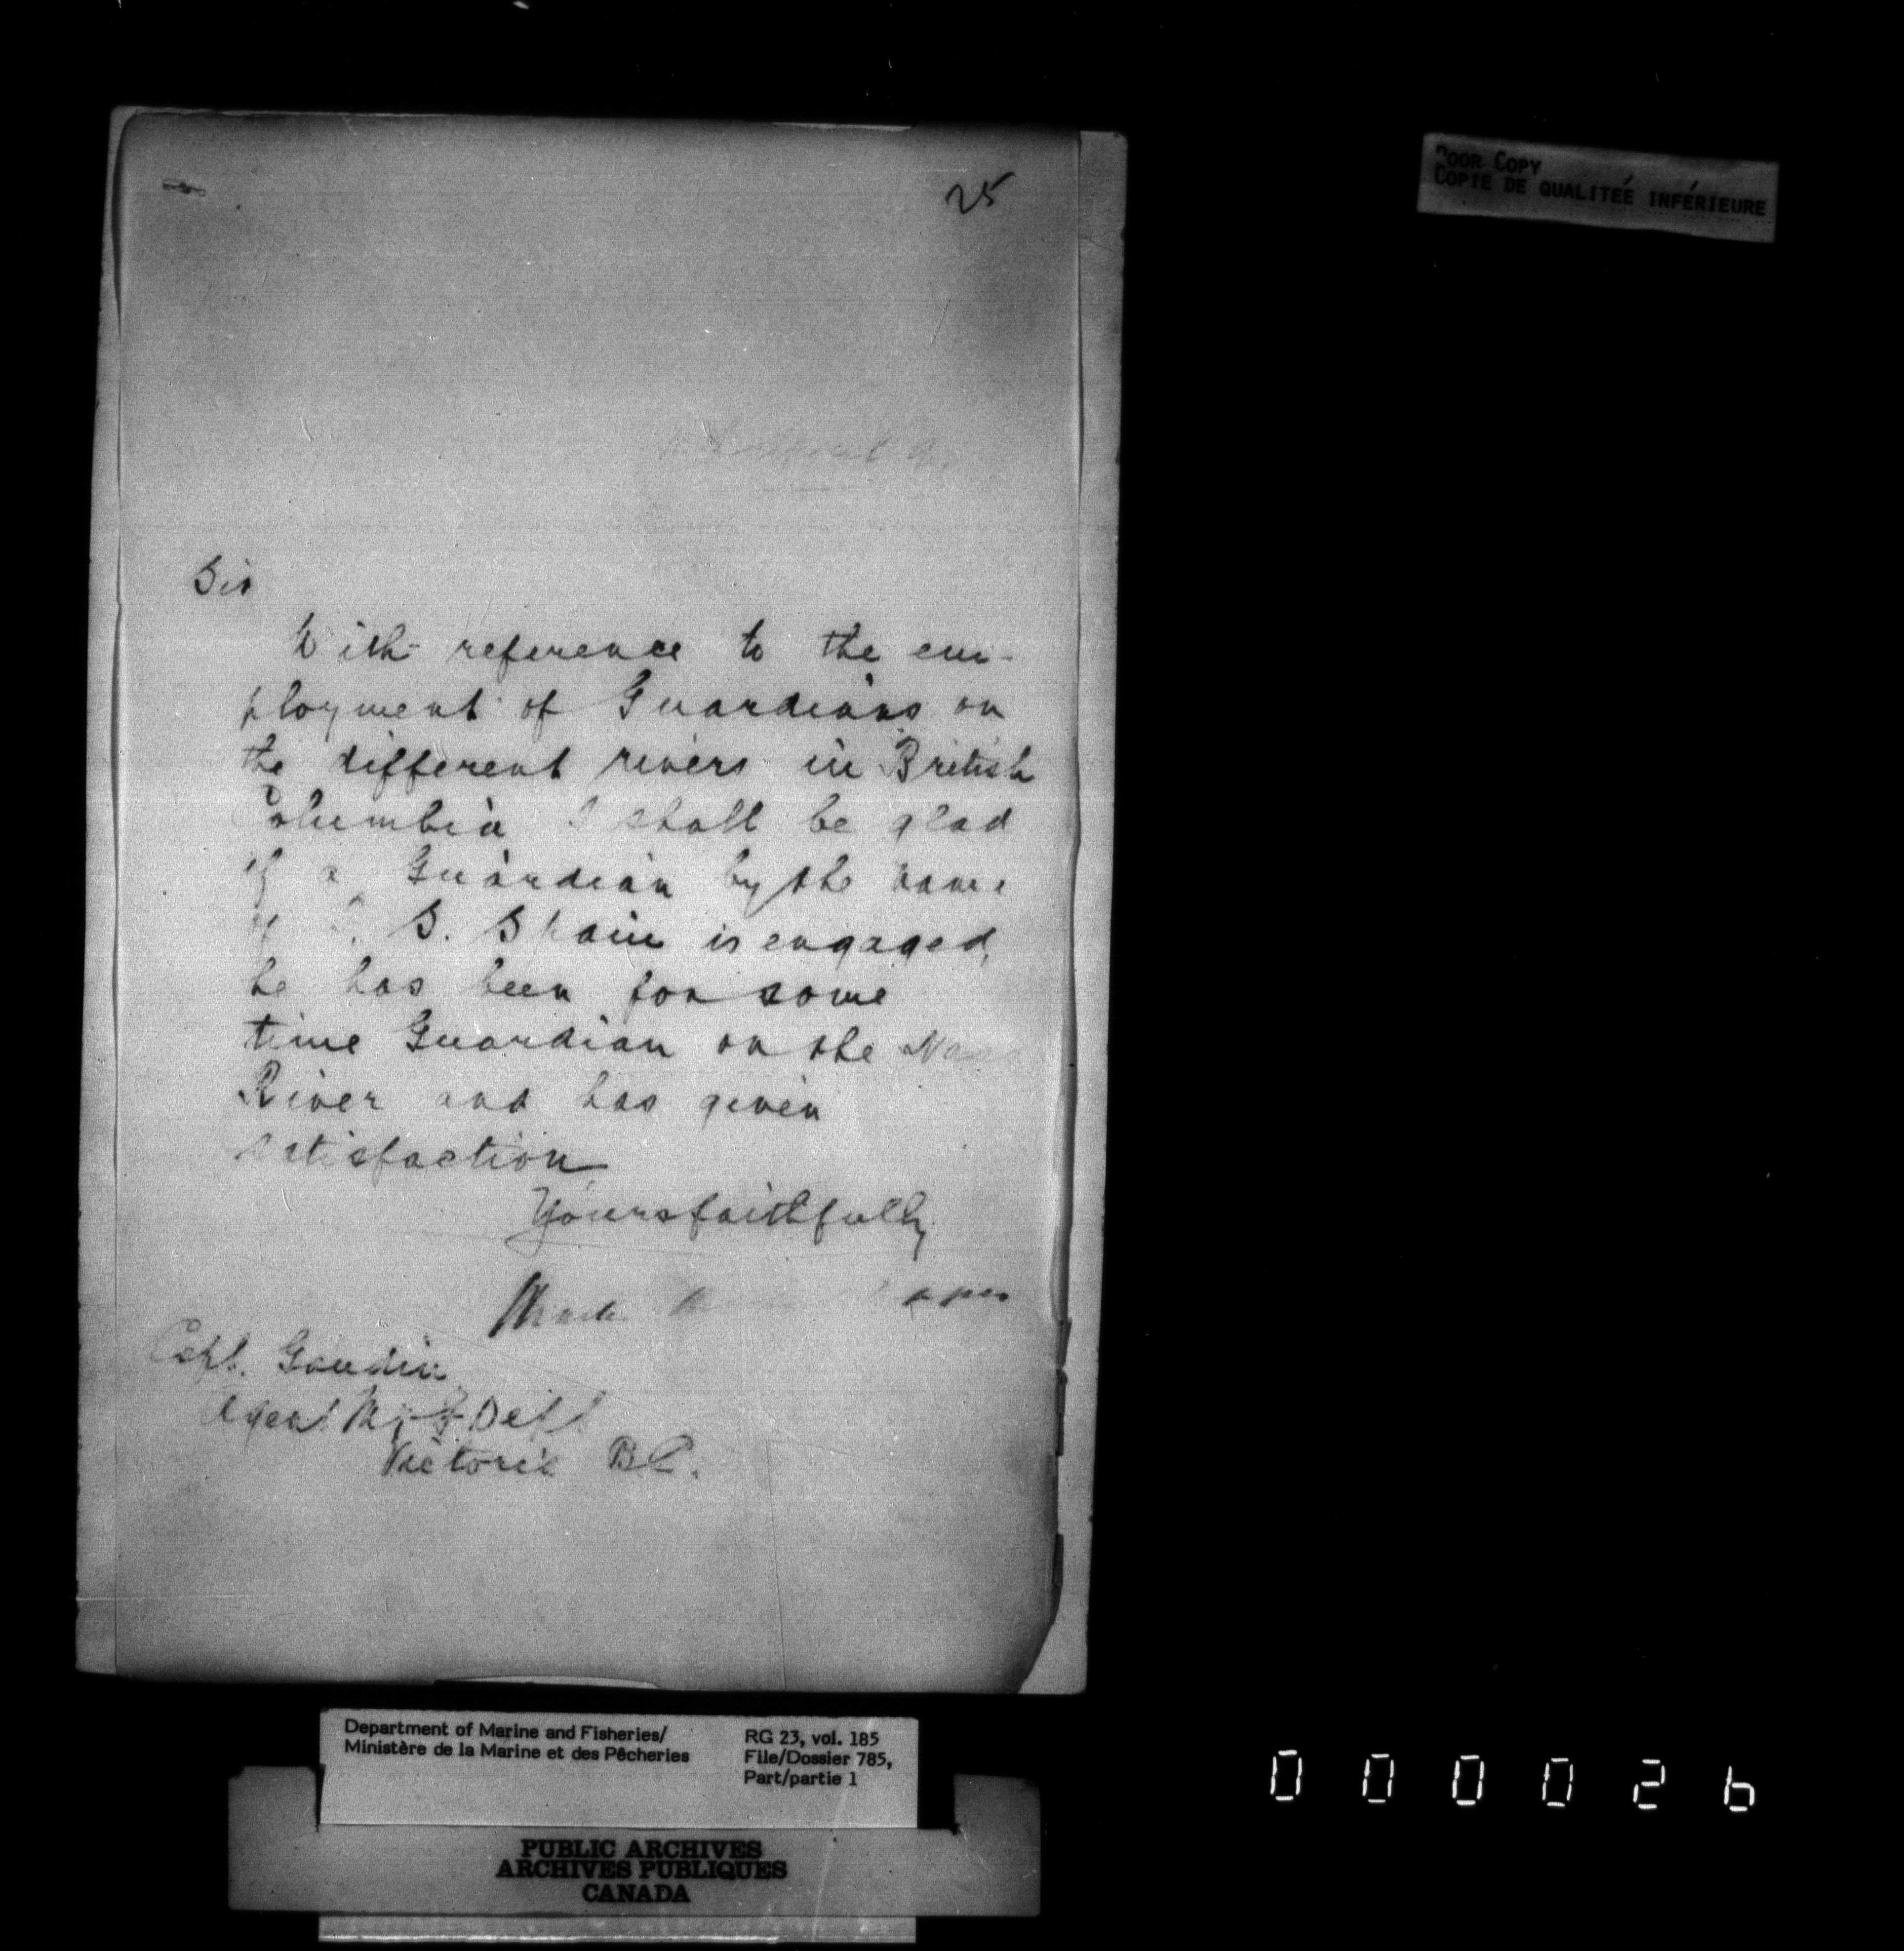 25
POOR COPY
COPIE DE QUALITEÉ INFÉRIEURE
Sir
With reference to the em-
ployment of Guardians on
the different rivers in British
Columbia I shall be glad
if a Guardian by the name
of S. Spain is engaged,
he has been for some
time Guardian on the Naas
River and has given
satisfaction
Yours faithfully
Capt. Gaudin
Agent M. & F. Dept
Victoria B.C.
Department of Marine and Fisheries/
Ministère de la Marine et des Pêcheries
RG 23, vol. 185
File/Dossier 785,
Part/partie 1
PUBLIC ARCHIVES
ARCHIVES PUBLIQUES
CANADA
000026